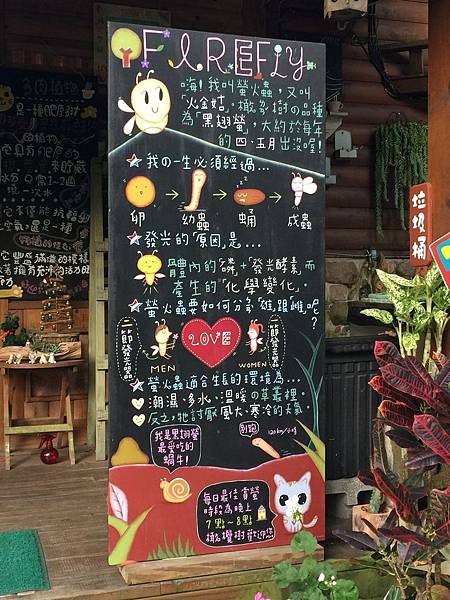 FIREFLY
嗨!我叫螢火蟲,又叫
「火金姑」。橄欖樹の品種
為「黑翅螢」,大約於每年
的四、五月出沒喔!
我の一生必須經過...
卵
幼蟲
蛹
成蟲
發光的原因是...
體內的「磷」+「發光酵素」而
產生的"化學變化"。
螢火蟲要如何分辨「雄跟雌」呢?
二節發光器
LOVE
一節發光器
MEN
WOMEN
螢火蟲適合生長的環境為...
潮濕、多水、溫暖の草叢裡。
反之,牠討厭風大、寒冷的天氣。
我是黑翅螢
最愛吃的
蝸牛!
別跑
每日最佳賞螢
時段為晚上
7點~8點
橄欖樹歡迎您
多肉植物
是一種肥厚多汁
的植物
來貯藏
水份只需1~2週
澆一次水
垃圾桶